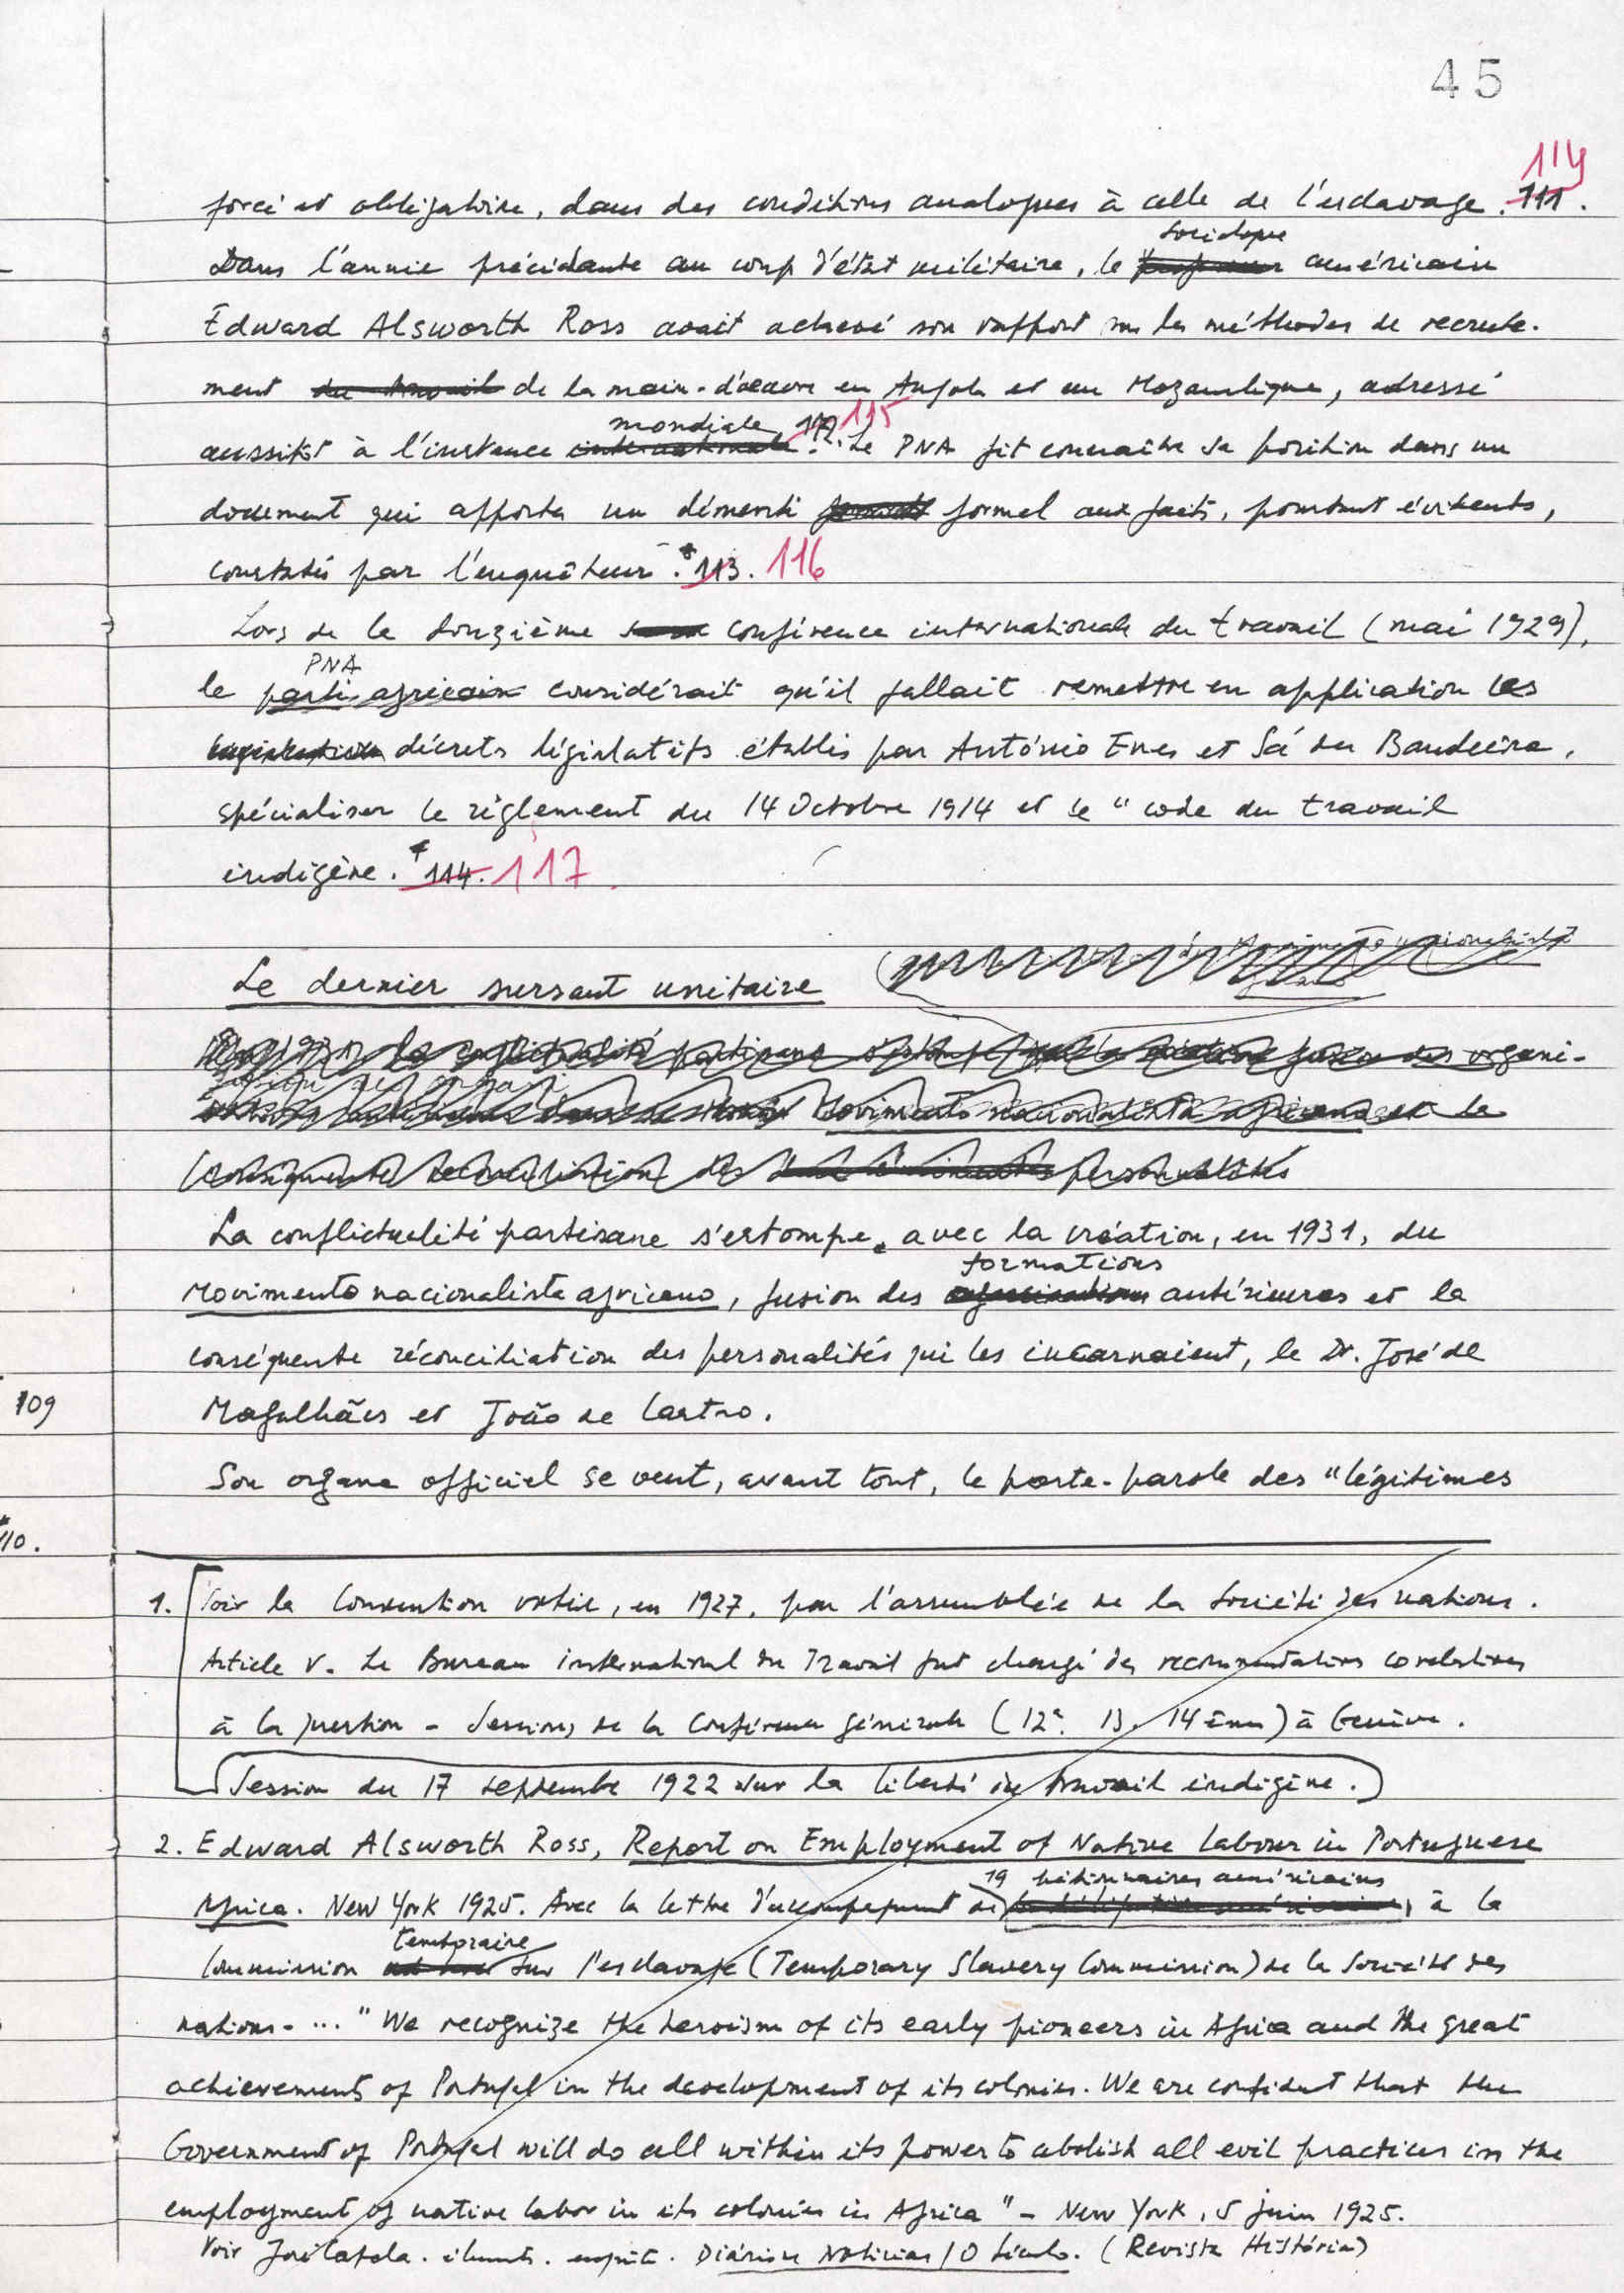 45
114
forcé et obligatoire, dans des conditions analogues à celle de l'esclavage. 111.
sociologue
Dans l'année précédante au coup d'état militaire, le professeur américain
Edward Alsworth Ross avait achevé son rapport sur les méthodes de recrute-
ment du travail de la main-d'œuvre en Angola et au Mozambique, adressé
mondiale 112. 115
aussitôt à l'instance internationale. Le PNA fit connaître sa position dans un
document qui apporta un démenti formel aux faits, pourtant évidents,
constatés par l'enquêteur.* 113. 116
Lors de la douzième conférence internationale du travail (mai 1929),
PNA
le parti africain considérait qu'il fallait remettre en application les
législation décrets législatifs établis par António Enes et Sá da Bandeira,
spécialiser le règlement du 14 Octobre 1914 et le "code du travail
indigène.* 114. 117
Le dernier sursaut unitaire
organi-
Movimento nacionalista africano et la
conséquente réconciliation des personnalités
La conflictualité partisane s'estompe avec la création, en 1931, du
formations
Movimento nacionalista africano, fusion des organisations antérieures et la
conséquente réconciliation des personalités qui les incarnaient, le Dr. José de
109
Magalhães et João de Castro.
Son organe officiel se veut, avant tout, le porte-parole des "légitimes
*110.
1. Voir la Convention votée, en 1927, par l'assemblée de la Société des nations.
Article V. Le Bureau international du Travail fut chargé des recommandations corelatives
à la question - Sessions de la Conférence générale (12e. 13. 14èmes) à Genève.
Session du 17 septembre 1922 sur la liberté du travail indigène.
2. Edward Alsworth Ross, Report on Employment of Native Labour in Portuguese
19 pétitionnaires américains
Africa. New York 1925. Avec la lettre d'accompagnement de la délégation américaine, à la
temporaire
Commission sur l'esclavage (Temporary Slavery Commission) de la Société des
nations - ... "We recognize the heroism of its early pioneers in Africa and the great
achievements of Portugal in the development of its colonies. We are confident that the
Government of Portugal will do all within its power to abolish all evil practices in the
employment of native labor in its colonies in Africa" - New York, 5 juin 1925.
Voir Diário de Notícias / O Século. (Revista História)